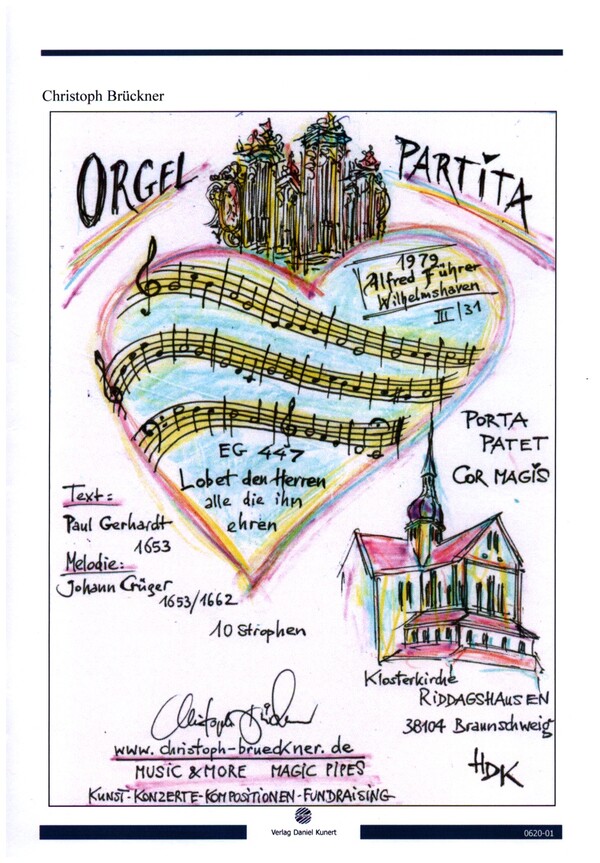 Christoph Brückner
ORGEL PARTITA
1979
Alfred Führer
Wilhelmshaven
III/31
EG 447
Lobet den Herren
alle die ihn
ehren
PORTA
PATET
COR MAGIS
Text:
Paul Gerhardt
1653
Melodie:
Johann Crüger
1653/1662
10 Strophen
Klosterkirche
RIDDAGSHAUSEN
38104 Braunschweig
HDK
Christoph Brückner
www.christoph-brueckner.de
MUSIC & MORE MAGIC PIPES
KUNST-KONZERTE-KOMPOSITIONEN-FUNDRAISING
Verlag Daniel Kunert
0620-01